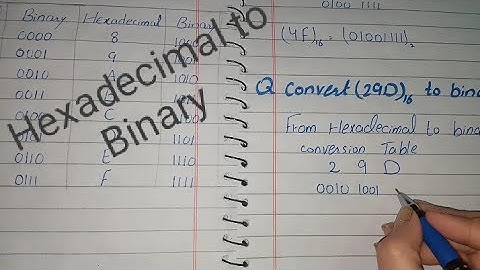 Binary Hexadecimal Binary
0000 8 1000
0001 9
0010
0011
C
1101
0110 E 1110
0111 F 1111
Hexadecimal to
Binary
0100 1111
(4F)16 = (01001111)2
Q convert (29D)16 to bina
From Hexadecimal to bina
conversion Table
2 9 D
0010 1001